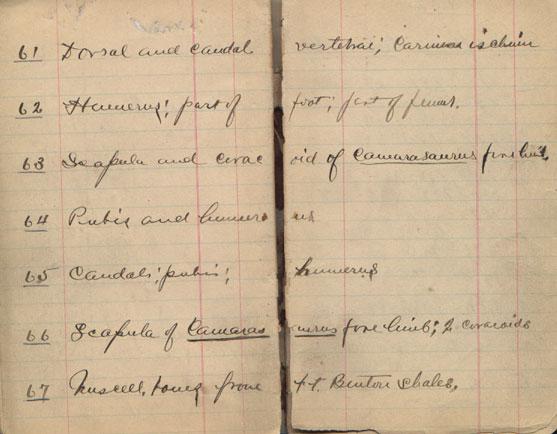 61 Dorsal and caudal vertebrae; ischium
62 Humerus; part of foot; part of femur.
63 Scapula and coracoid of Camarasaurus fore limb.
64 Pubis and humerus
65 Caudals; pubis; humerus
66 Scapula of Camarasaurus fore limb; 2 coracoids
67 bones from Ft. Benton shales.